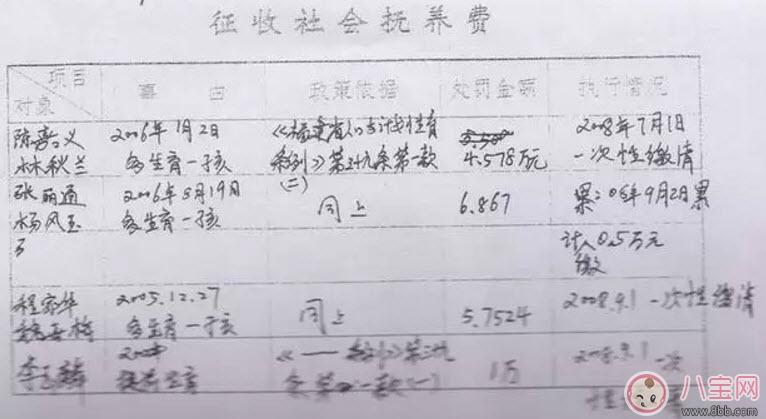 征收社会抚养费
项目
对象
事由
政策依据
处罚金额
执行情况
陈嘉义
林秋兰
2006年1月2日
多生育一孩
《福建省人口与计划生育
条例》第卅九条第一款
(二)
4.578万元
2008年7月1日
一次性缴清
张丽通
杨凤玉
2006年8月19日
多生育一孩
同上
6.867
累:06年9月2日累
计入0.5万元
缴
程家华
2005.12.27
多生育一孩
同上
5.7524
2008.9.1 一次性缴清
提前生育
第卅九
条第 一款(一)
1万
2008.9.1 一次
八宝网
www.8bb.com